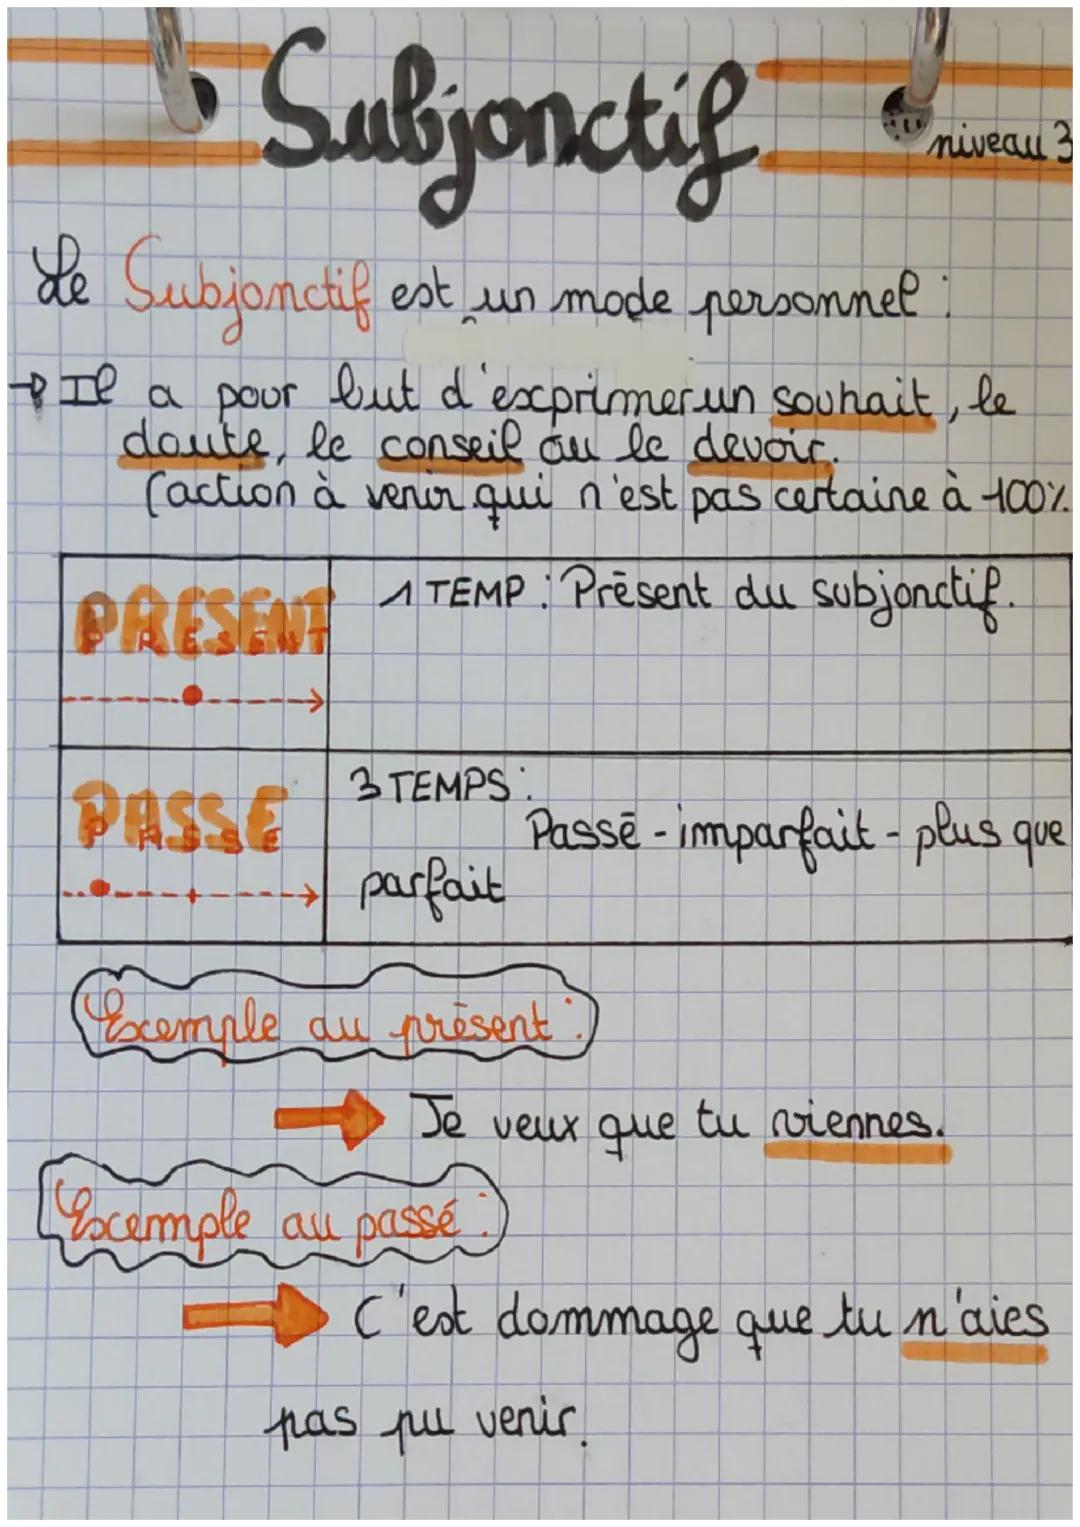 Subjonctif
niveau 3
Le Subjonctif est un mode personnel :
→ Il a pour but d'exprimer un souhait, le
doute, le conseil ou le devoir.
(action à venir qui n'est pas certaine à 100%
PRESENT
PRESENT
1 TEMP : Présent du subjonctif.
PASSE
PASSE
3 TEMPS :
Passé - imparfait - plus que
parfait
Exemple au présent :
Je veux que tu viennes.
Exemple au passé :
C'est dommage que tu n'aies
pas pu venir.